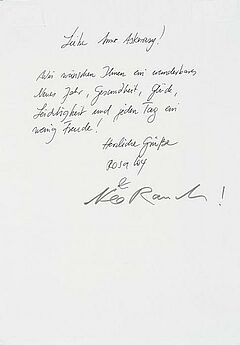 Liebe Anne Askenasy!
Wir wünschen Ihnen ein wunderbares
Neues Jahr, Gesundheit, Glück,
Leichtigkeit und jeden Tag ein
wenig Freude!
Herzliche Grüße
ROSA LOY
&
Neo Rauch!